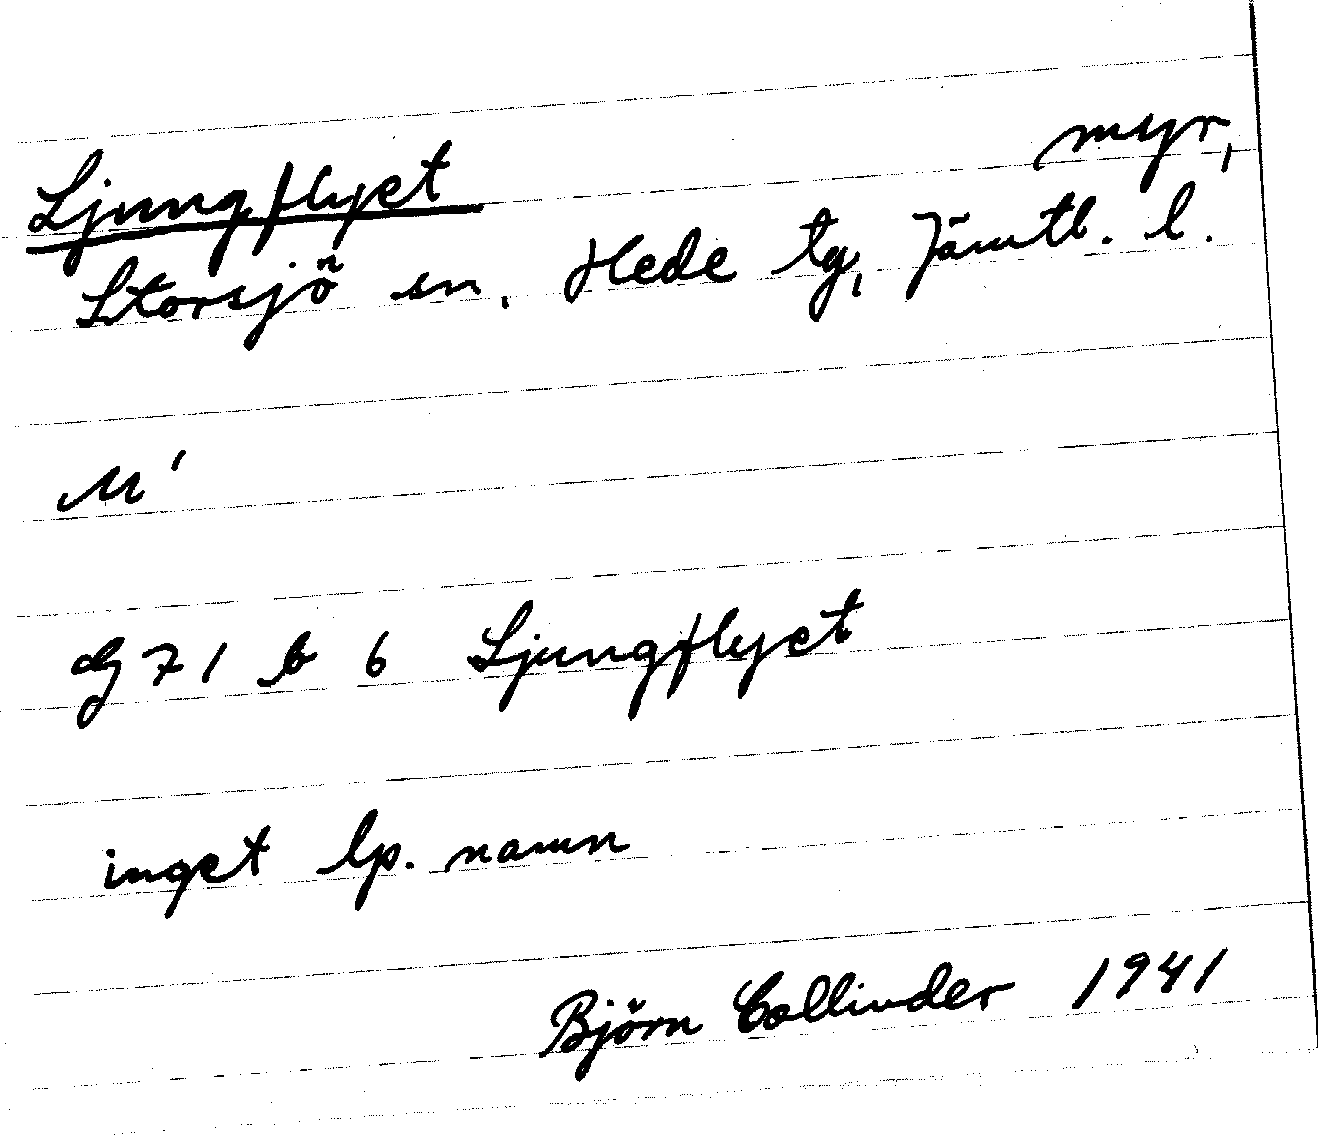 Ljungflyet myr,
Storsjö sn, Hede tg, Jämtl. l.
M'
dg 71 b 6 Ljungflyet
inget lp. namn
Björn Collinder 1941